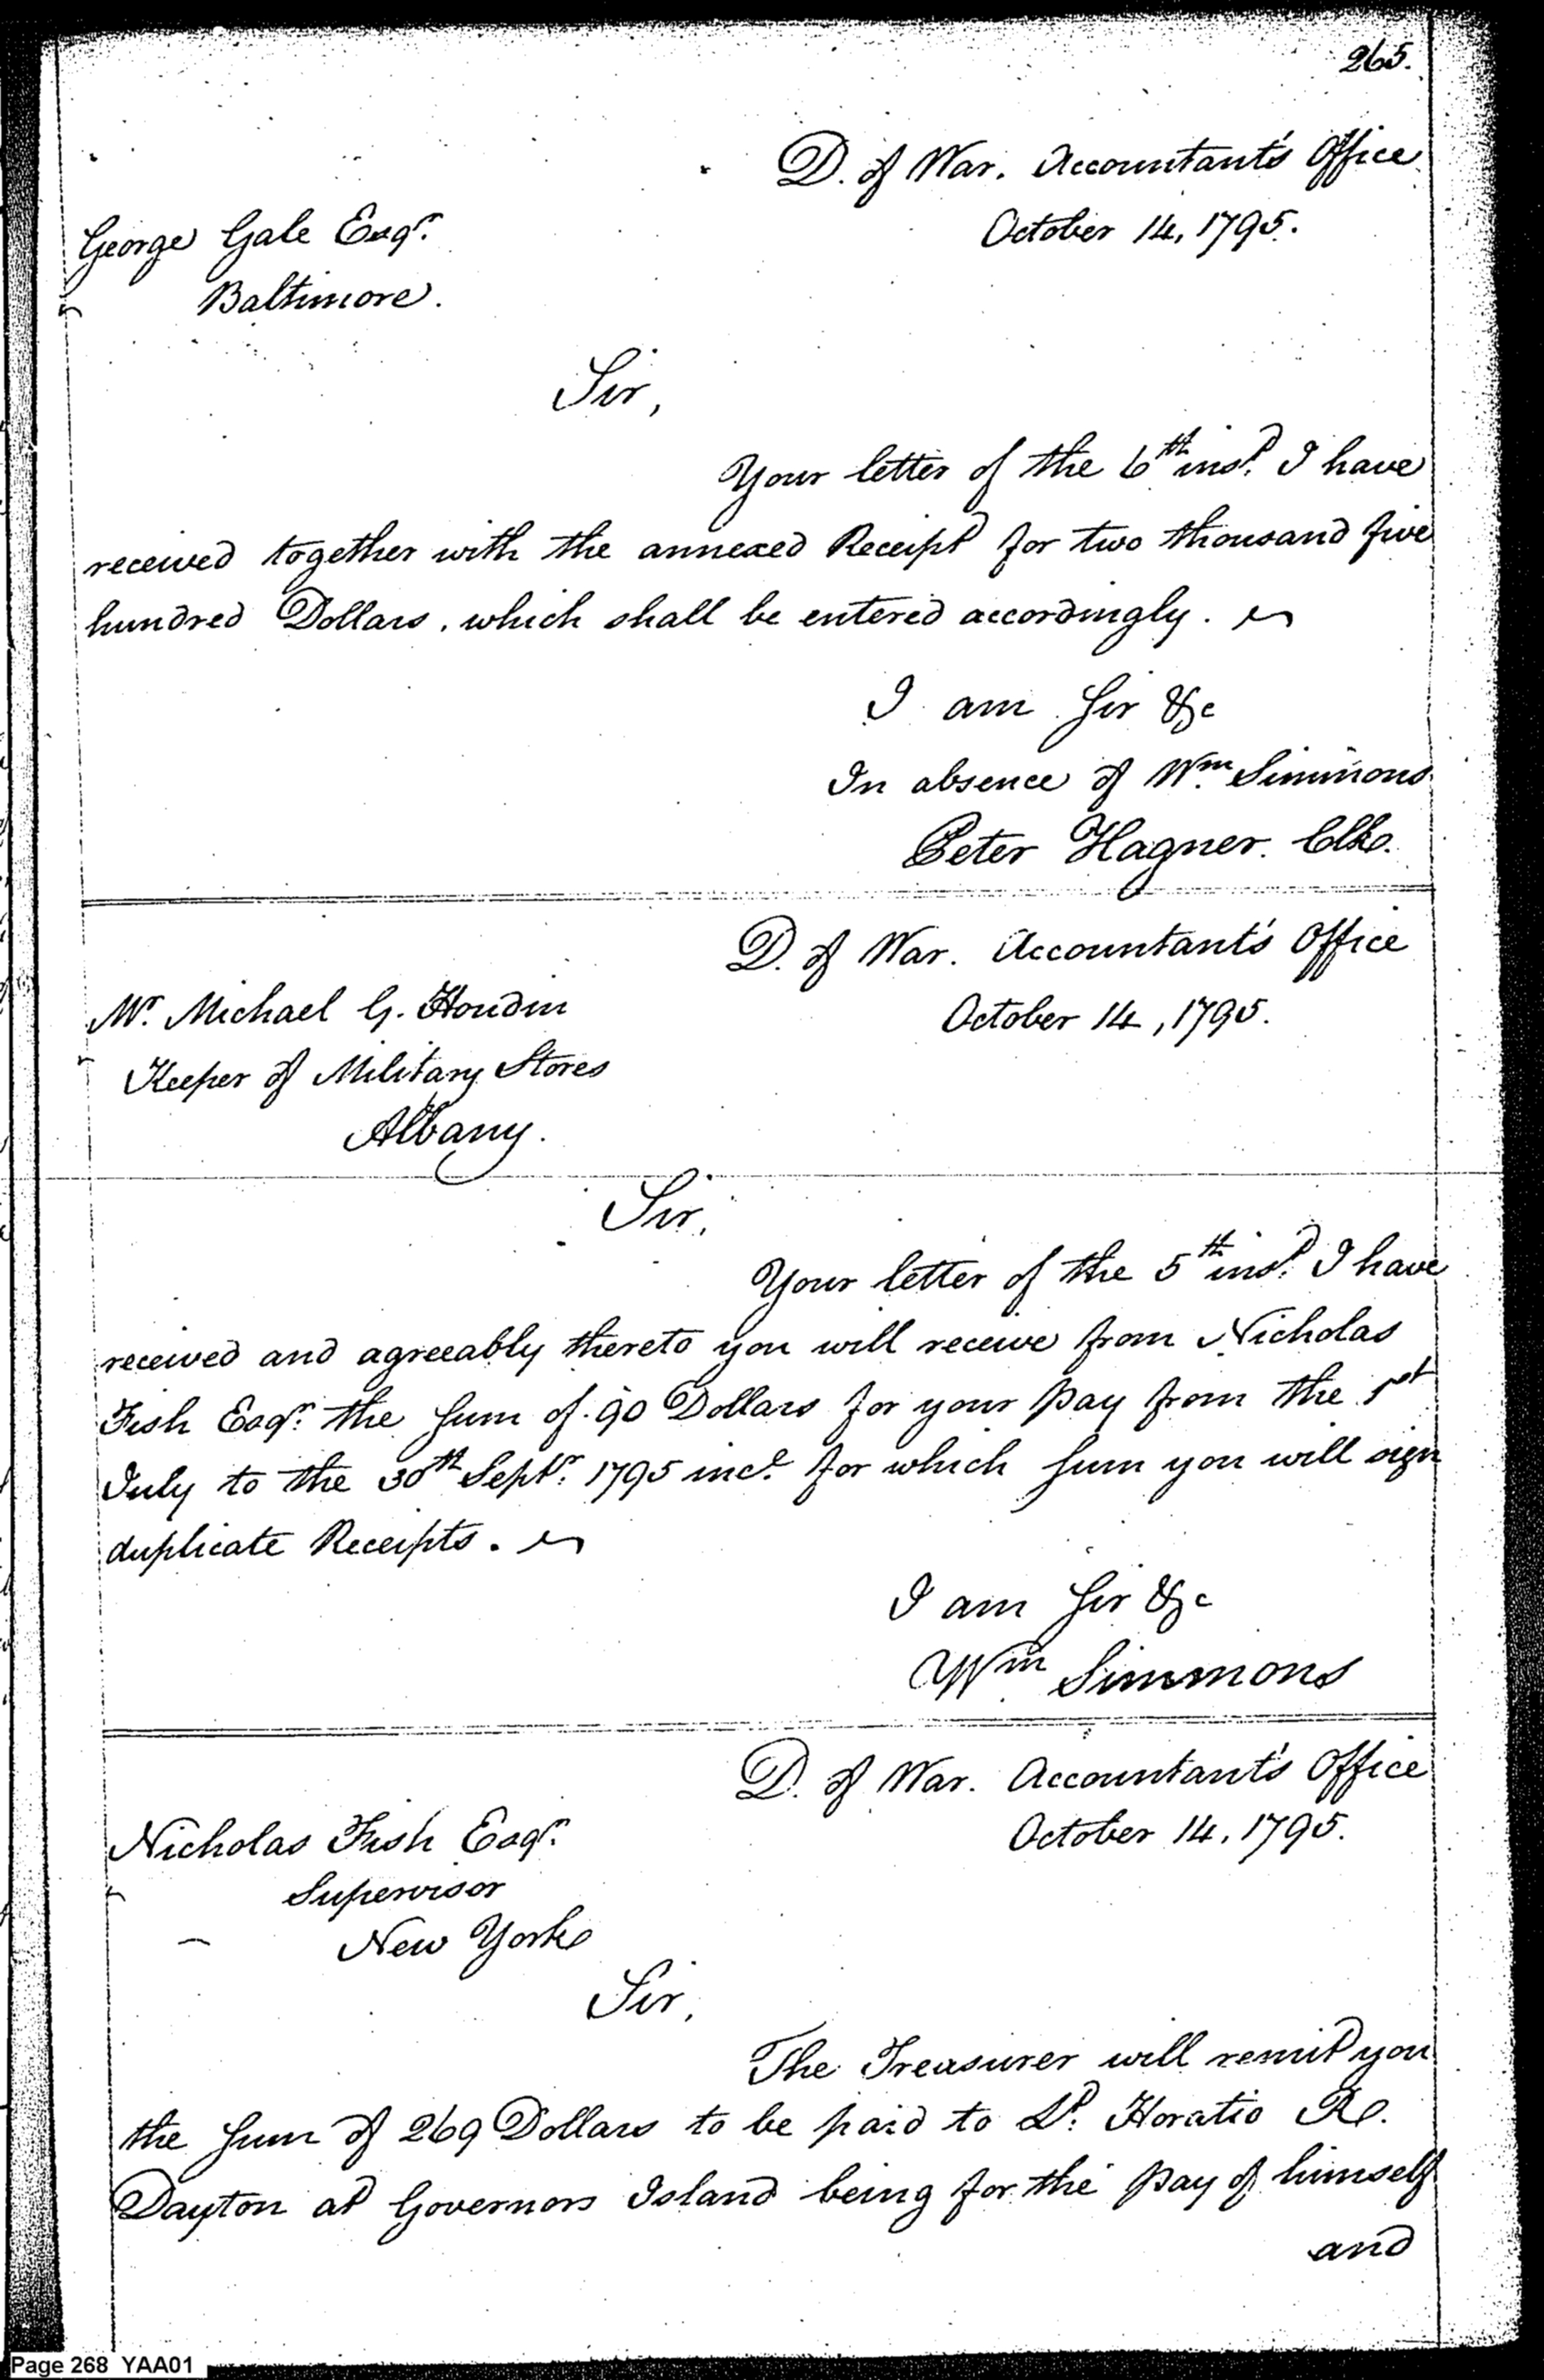 265.
D. of War. Accountant's Office
October 14, 1795.
George Gale Esqr.
Baltimore.
Sir,
Your letter of the 6th inst. I have
received together with the annexed Receipt for two thousand five
hundred Dollars, which shall be entered accordingly.
I am Sir &c
In absence of Wm. Simmons
Peter Hagner. Clk.
D. of War. Accountant's Office
October 14, 1795.
Mr. Michael G. Houdin
Keeper of Military Stores
Albany.
Sir,
Your letter of the 5th inst. I have
received and agreeably thereto you will receive from Nicholas
Fish Esqr. the Sum of 90 Dollars for your pay from the 1st
July to the 30th Septr. 1795 incl. for which Sum you will sign
duplicate Receipts.
I am Sir &c
Wm Simmons
D. of War. Accountant's Office
October 14, 1795.
Nicholas Fish Esqr.
Supervisor
New York
Sir,
The Treasurer will remit you
the Sum of 269 Dollars to be paid to Lt. Horatio R.
Dayton at Governors Island being for the pay of himself
and
Page 268 YAA01